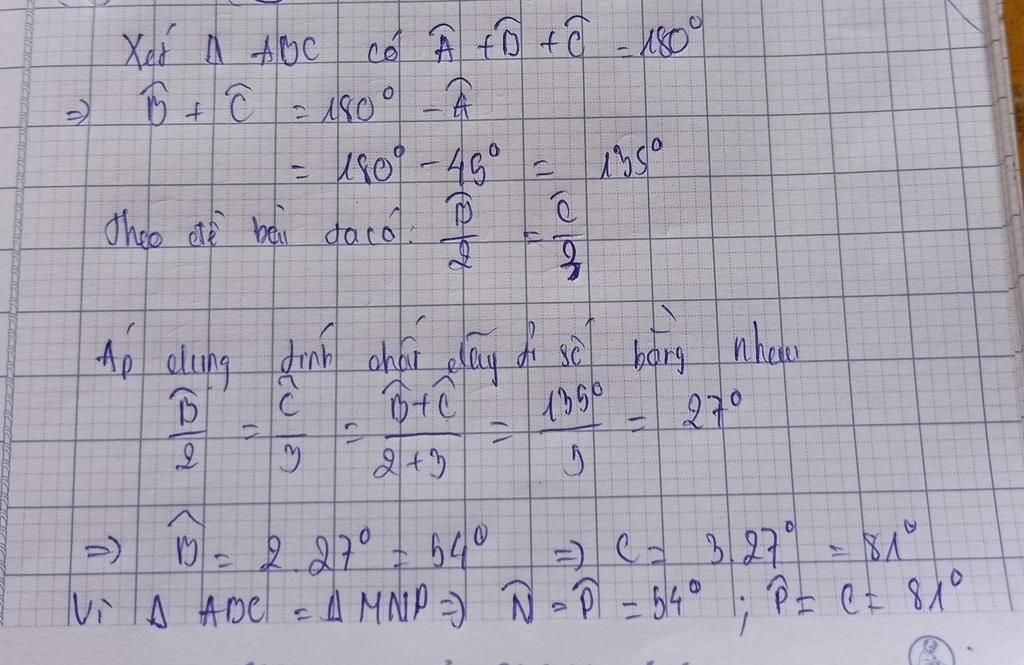 Xét Δ ABC có Â + B̂ + Ĉ = 180°
=> B̂ + Ĉ = 180° - Â
= 180° - 45° = 135°
Theo đề bài ta có: B̂/2 = Ĉ/3
Áp dụng tính chất dãy tỉ số bằng nhau
B̂/2 = Ĉ/3 = (B̂+Ĉ)/(2+3) = 135°/5 = 27°
=> B̂ = 2.27° = 54° => C = 3.27° = 81°
Vì Δ ABC = Δ MNP => N̂ = B̂ = 54° ; P̂ = C = 81°